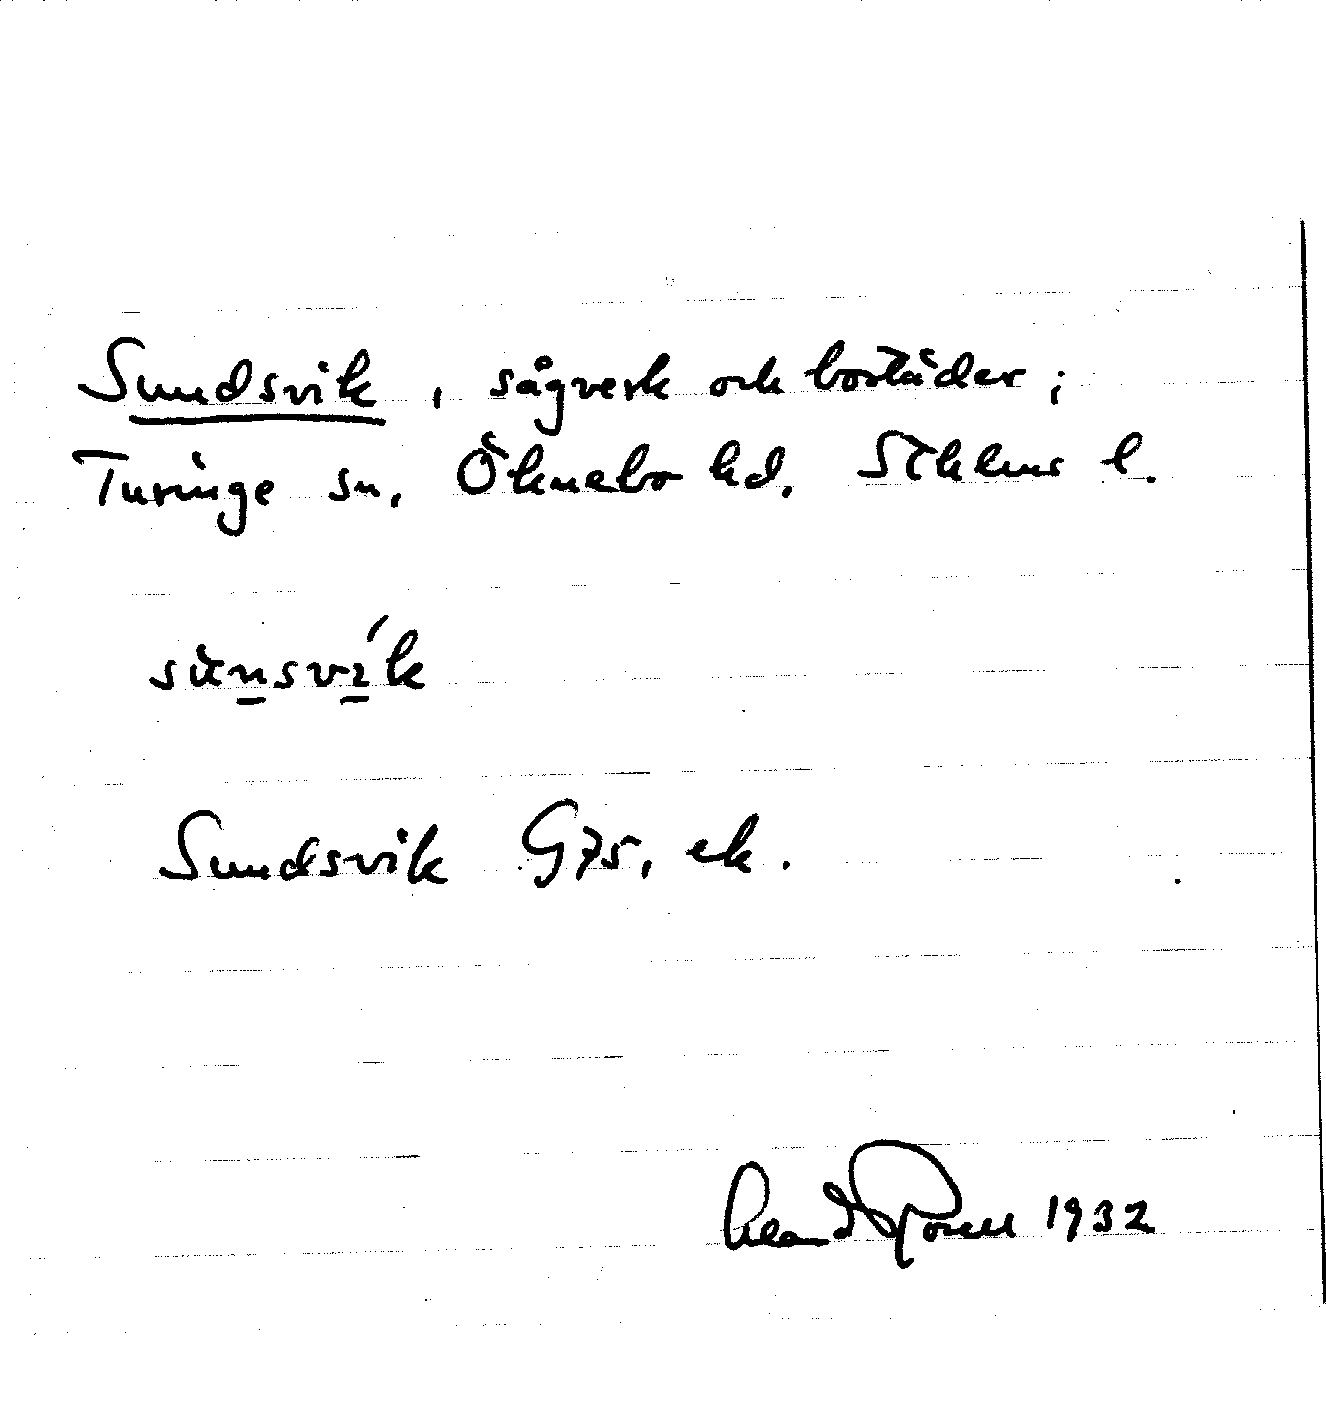 Sundsvik, sågverk och bostäder;
Turinge sn, Öknebo hd. Sthlms l.
sünsvík
Sundsvik G75, ek.
1932